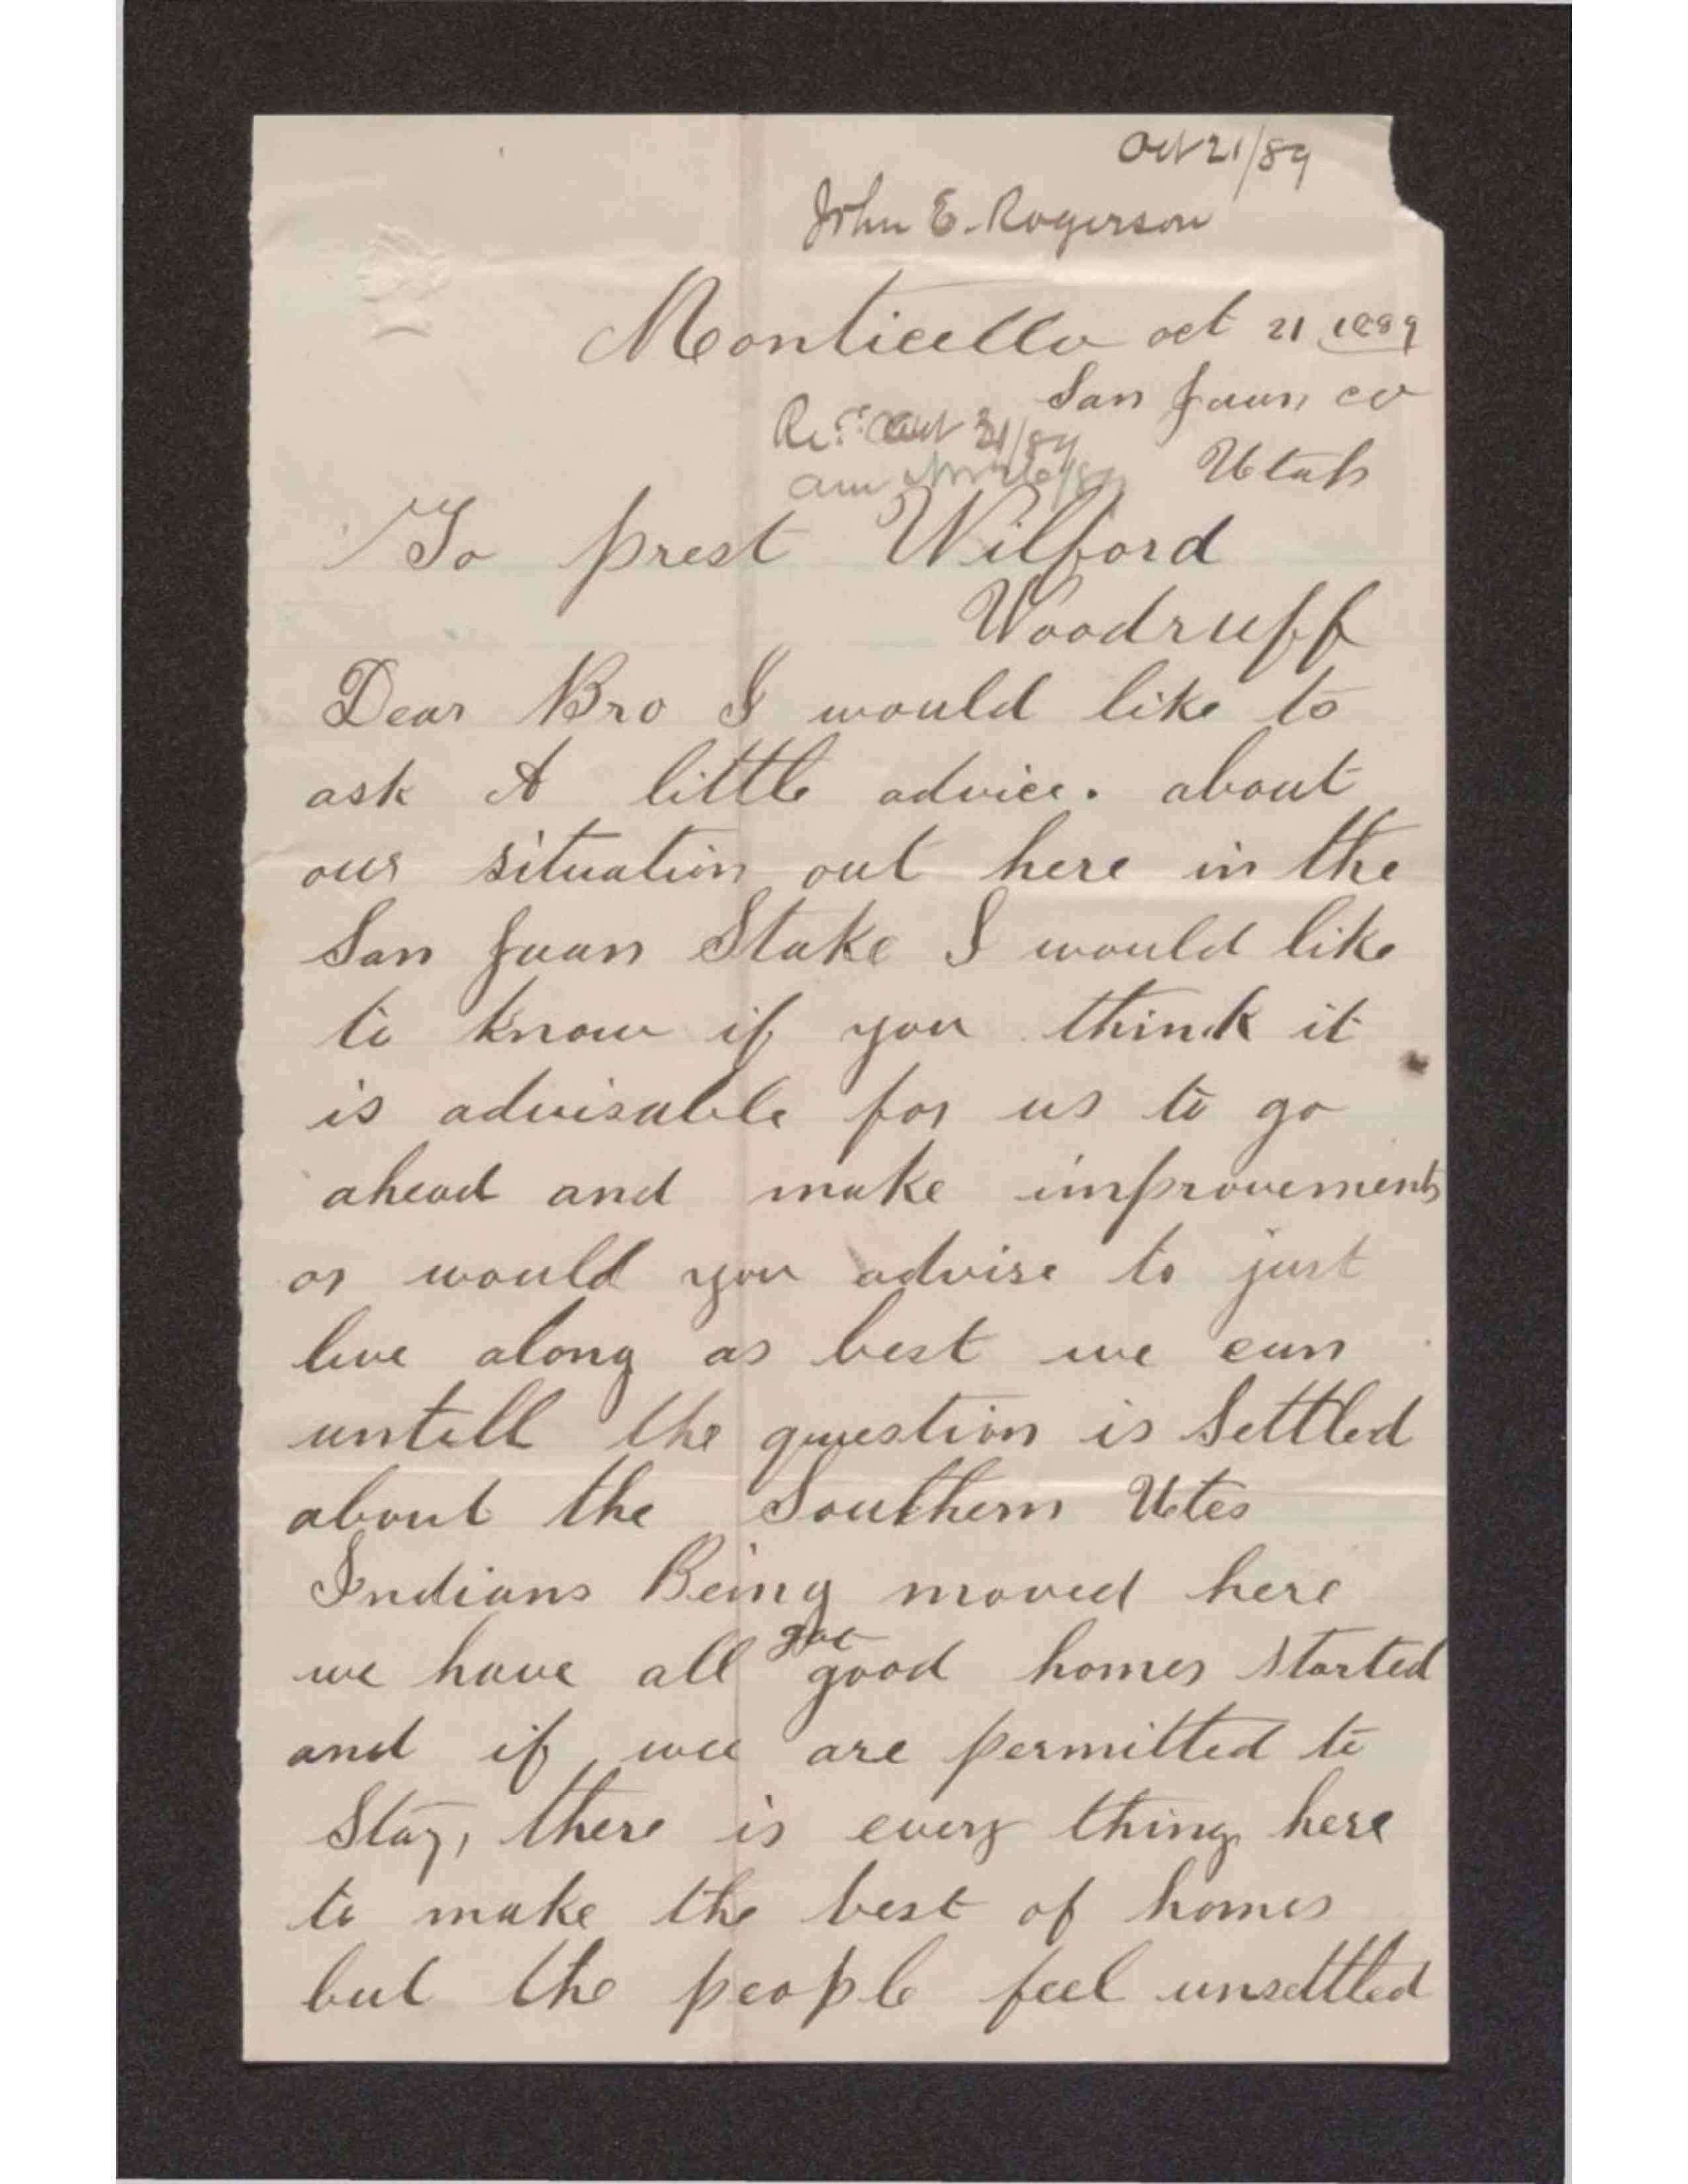 Oct 21/89
John E. Rogerson
Monticello oct 21 1889
San Juan co
Oct 31/89
Utah
To prest Wilford
Woodruff
Dear Bro I would like to
ask A little advice. about
our situation out here in the
San Juan Stake I would like
to know if you think it
is advisable for us to go
ahead and make improvements
or would you advise to just
live along as best we can
untill the question is Settled
about the Southern Utes
Indians Being moved here
we have all got good homes started
and if wee are permitted to
Stay, there is every thing here
to make the best of homes
but the people feel unsettled